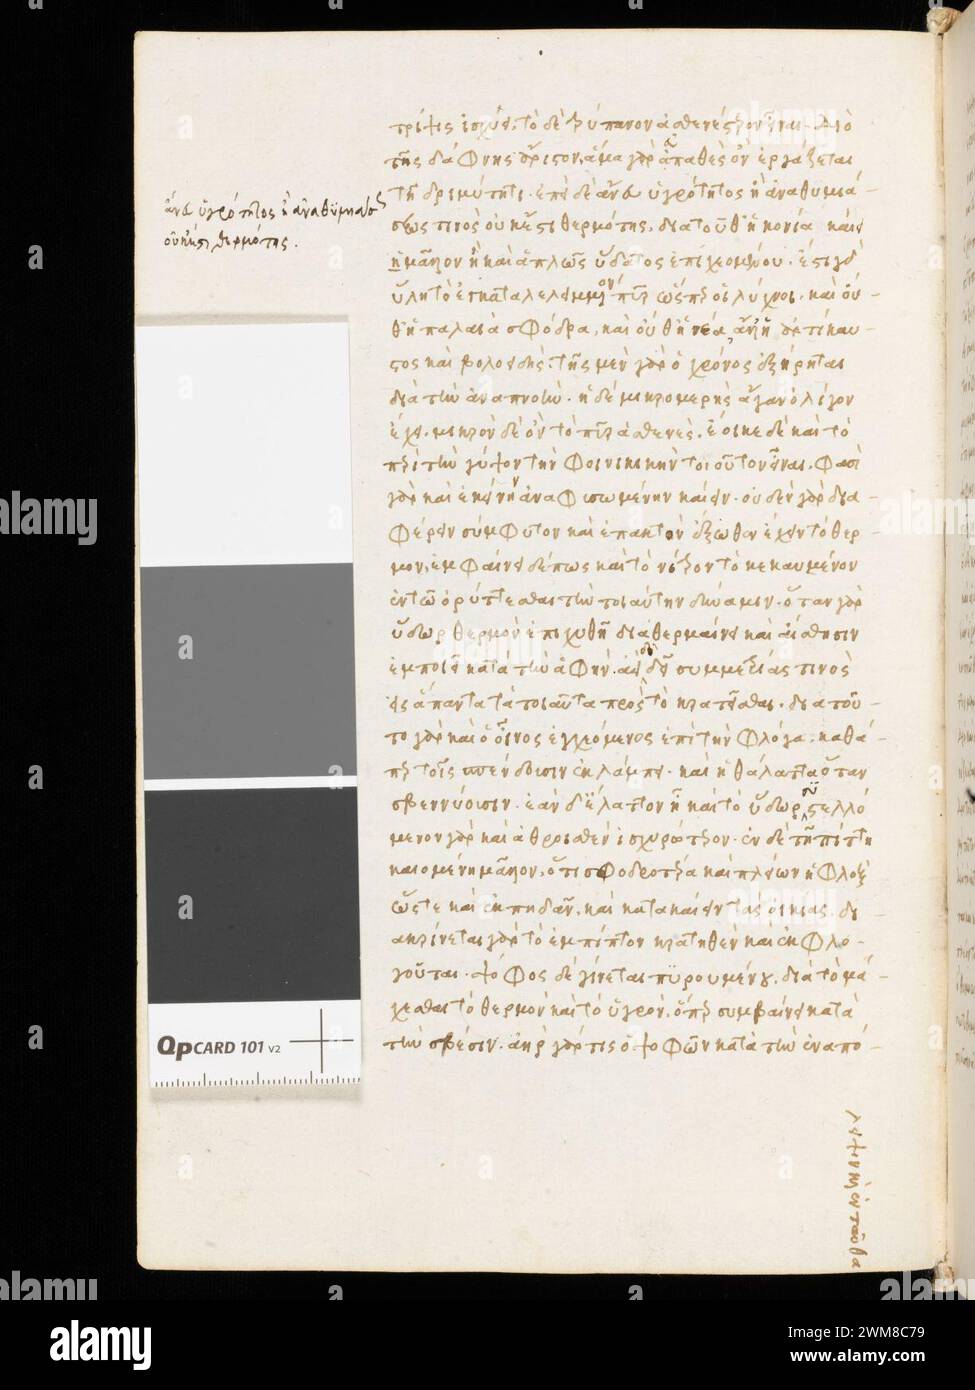 ἄνευ ὑγρότητος ἢ ἀναθυμιάσ
οὐκ ἔστι θερμότης.
τρίψις ἰσχύει, τὸ δὲ τρύπανον ἀσθενέστερον εἶναι. διὸ
τῆς δάφνης ἄριστον, ἅμα γὰρ ἀπαθὲς ὂν ἐργάζεται
τῇ δριμύτητι. ἐπεὶ δὲ ἄνευ ὑγρότητος ἢ ἀναθυμιά-
σεώς τινος οὐκ ἔστι θερμότης, διὰ τοῦθ' ἡ κονία καίει
μᾶλλον ἢ καὶ ἁπλῶς ὕδατος ἐπιχεομένου. ἔστι γὰρ
ὕλη τὸ ἐγκαταλελειμμένον πῦρ ὥσπερ οἱ λύχνοι. καὶ οὐ-
θ' ἡ παλαιὰ σφόδρα, καὶ οὐθ' ἡ νέα, ἀλλ' ἡ ἄρτι καυ-
τὸς καὶ βολοειδής. τῆς μὲν γὰρ ὁ χρόνος ἐξῄρηται
διὰ τὴν ἀναπνοήν. ἡ δὲ μικρομερὴς ἄγαν ὀλίγον
ἔχει. μικρὸν δὲ ὂν τὸ πῦρ ἀσθενές. ἔοικε δὲ καὶ τὸ
περὶ τὴν γύψον τὴν φοινικικὴν τοιοῦτον εἶναι. φασὶ
γὰρ καὶ ἐκείνην ἀναφισωμένην καίειν. οὐδὲν γὰρ δια-
φέρειν σύμφυτον καὶ ἐπακτὸν ἔξωθεν ἔχειν τὸ θερ-
μόν, ἐμφαίνει δέ πως καὶ τὸ κεκαυμένον
ἐν τῷ ὀρύττεσθαι τὴν τοιαύτην δύναμιν. ὅταν γὰρ
ὕδωρ θερμὸν ἐπιχυθῇ διαθερμαίνει καὶ αἴσθησιν
ἐμποιεῖ κατὰ τὴν ἁφήν. ἀεὶ δὲ δεῖ συμμετρίας τινὸς
εἰς ἅπαντα τὰ τοιαῦτα πρὸς τὸ κρατεῖσθαι. διὰ τοῦ-
το γὰρ καὶ ὁ οἶνος ἐγχεόμενος ἐπὶ τὴν φλόγα, καθά-
περ τοῖς σπένδουσιν ἐκλάμπει. καὶ ἡ θάλαττα ὅταν
σβεννύουσιν. ἐὰν δ' ἔλαττον ᾖ καὶ τὸ ὕδωρ, συστελλό
μενον γὰρ καὶ ἀθροισθὲν ἰσχυρότερον. ἐν δὲ τῇ πίττῃ
καιομένῃ μᾶλλον, ὅτι σφοδροτέρα καὶ πλείων ἡ φλὸξ
ὥστε καὶ ἐκπηδᾶν, καὶ κατακαίειν τὰς οἰκίας. δι
ακρίνεται γὰρ τὸ ἐμπῖπτον κρατηθὲν καὶ ἐκφλο-
γοῦται. ψόφος δὲ γίνεται πυρουμένου, διὰ τὸ μά-
χεσθαι τὸ θερμὸν καὶ τὸ ὑγρόν, ὅπερ συμβαίνει κατὰ
τὴν σβέσιν. ἀὴρ γάρ τις ὁ ψοφῶν κατὰ τὴν ἐναπό-
λειψιν ἐνταῦθα
QPCARD 101 v2
alamy
Image ID: 2WM8C79
www.alamy.com